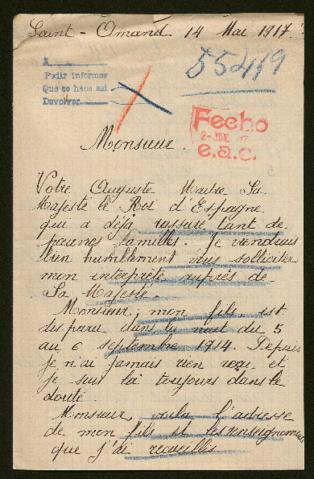 Saint-Amand 14 Mai 1917.
55419
A
Pedir informes
Que se haga así
Devolver
Fecho
2-JUN. 17
e.a.c.
Monsieur.
Votre Auguste Maitre Sa
Majesté le Roi d'Espagne
qui a déjà rassuré tant de
pauvres familles. Je viendrais
bien humblement vous solliciter
mon interprète auprès de
Sa Majesté.
Monsieur, mon fils est
disparu dans la nuit du 5
au 6 septembre 1914. Depuis
je n'ai jamais rien reçu et
je suis là toujours dans le
doute.
Monsieur, voila l'adresse
de mon fils et les renseignements
que j'ai recueillis